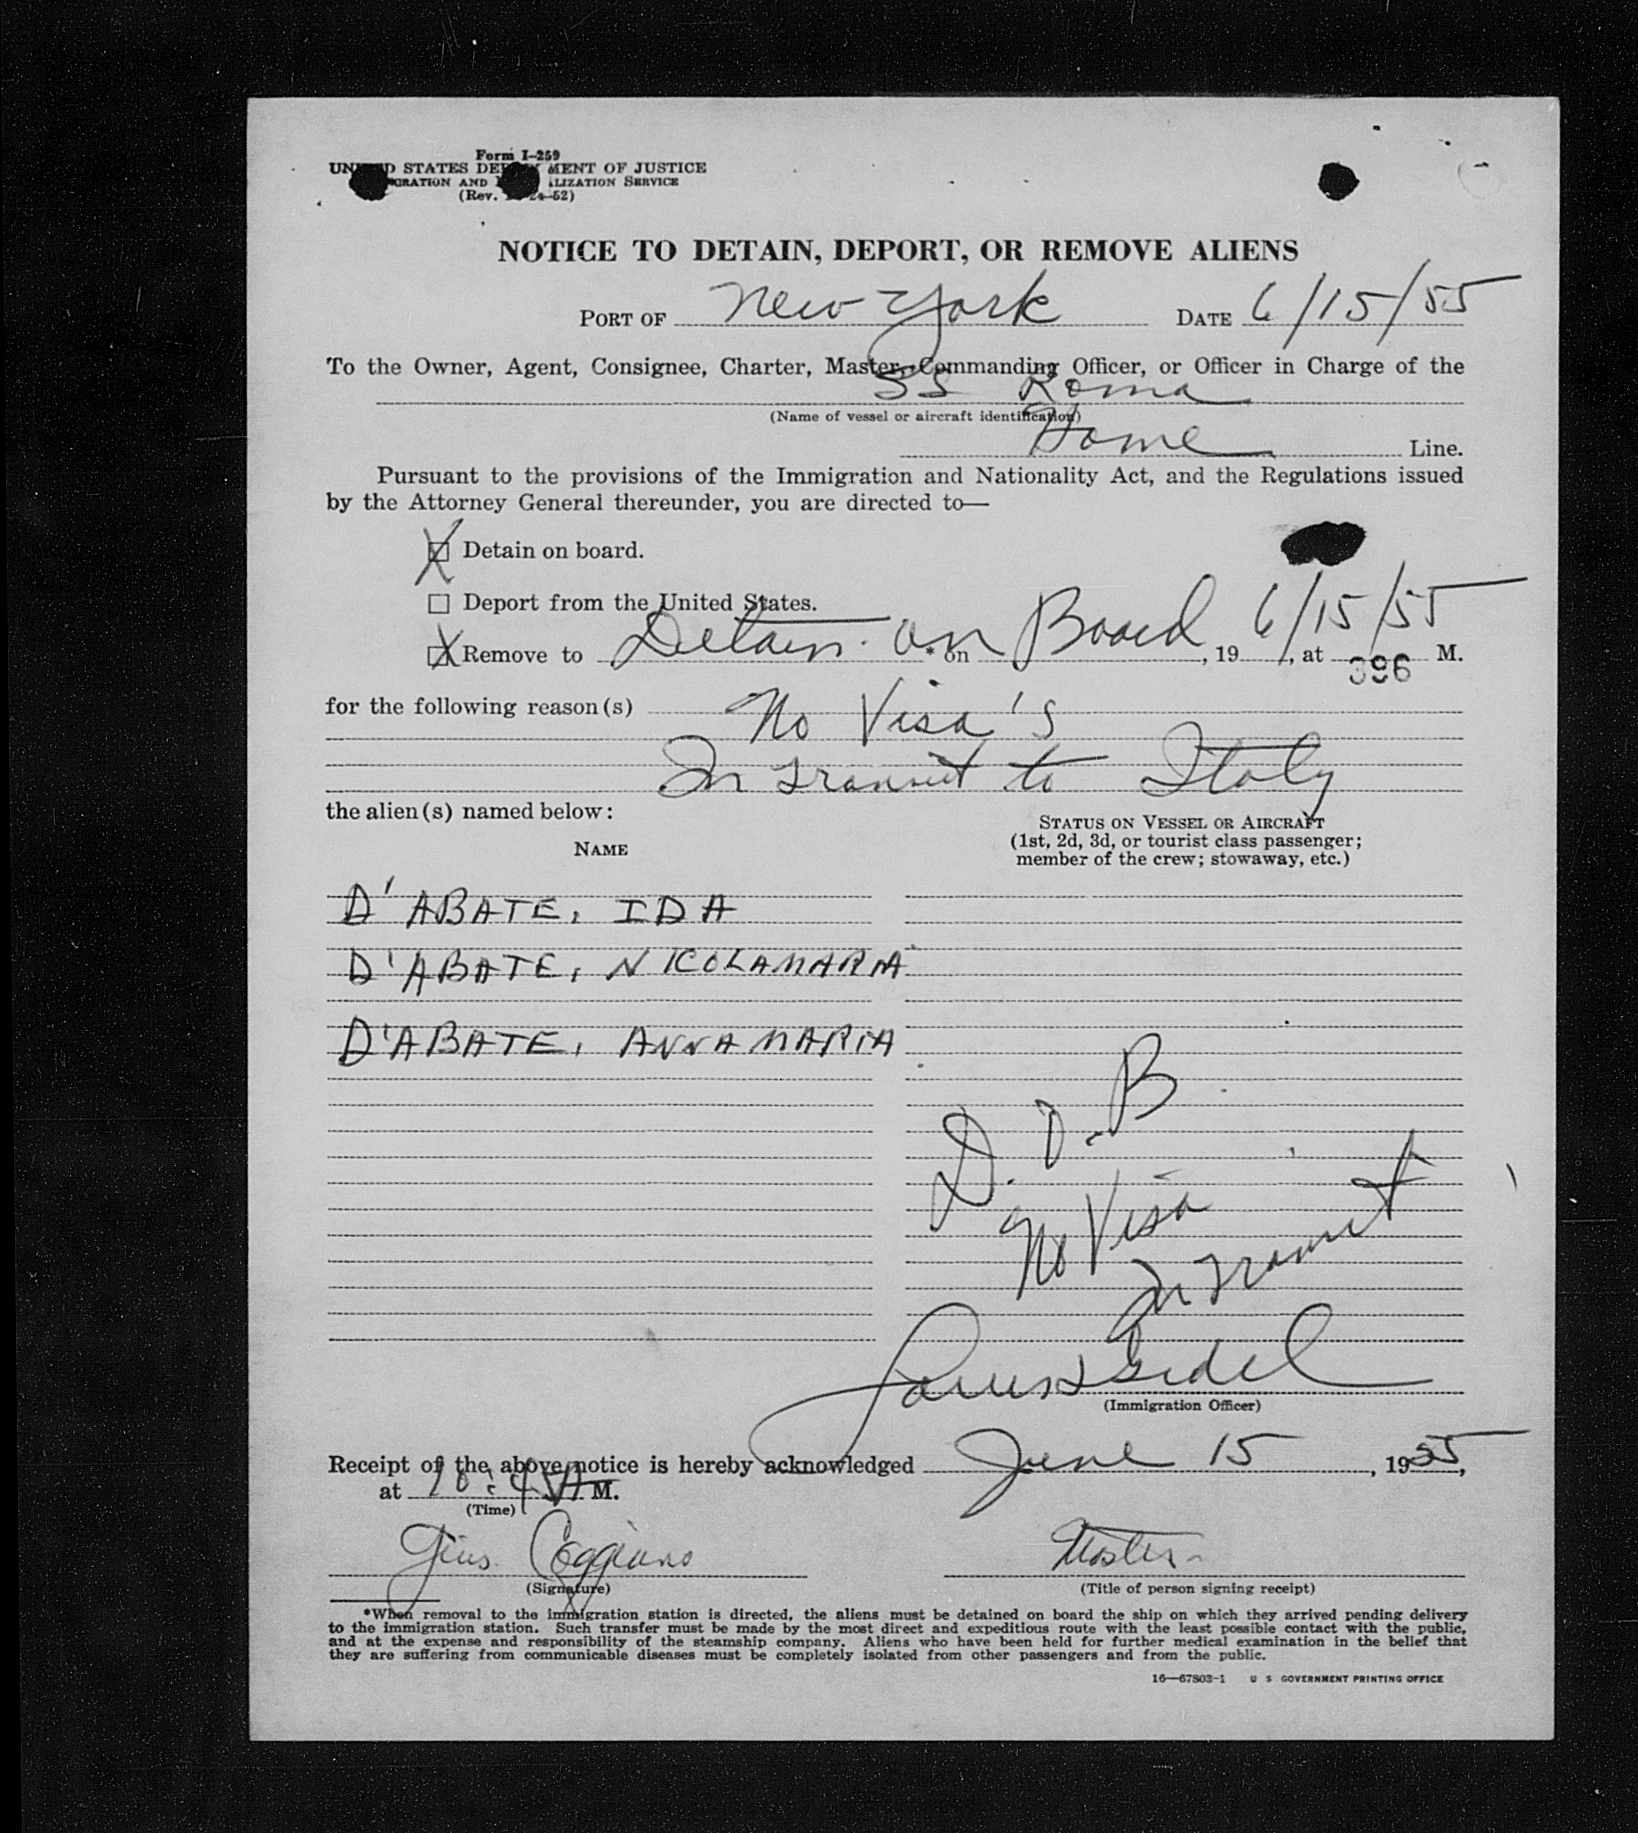 Form I-259
UNITED STATES DEPARTMENT OF JUSTICE
IMMIGRATION AND NATURALIZATION SERVICE
(Rev. 24-52)
NOTICE TO DETAIN, DEPORT, OR REMOVE ALIENS
PORT OF New York DATE 6/15/55
To the Owner, Agent, Consignee, Charter, Master, Commanding Officer, or Officer in Charge of the
SS Roma
(Name of vessel or aircraft identification)
Home Line.
Pursuant to the provisions of the Immigration and Nationality Act, and the Regulations issued
by the Attorney General thereunder, you are directed to—
☒ Detain on board.
☐ Deport from the United States.
☒ Remove to Detain on * on Board, 19 6/15/55, at M.
396
for the following reason(s) No Visa's
In transit to Italy
the alien(s) named below:
NAME
STATUS ON VESSEL OR AIRCRAFT
(1st, 2d, 3d, or tourist class passenger;
member of the crew; stowaway, etc.)
D'ABATE, IDA
D'ABATE, NICOLAMARIA
D'ABATE, ANNAMARIA
D.O.B
No Visa
In Transit
(Immigration Officer)
Receipt of the above notice is hereby acknowledged June 15, 1955,
at 10:45 A M.
(Time)
Gius. Coggiano
Master
(Signature)
(Title of person signing receipt)
*When removal to the immigration station is directed, the aliens must be detained on board the ship on which they arrived pending delivery
to the immigration station. Such transfer must be made by the most direct and expeditious route with the least possible contact with the public,
and at the expense and responsibility of the steamship company. Aliens who have been held for further medical examination in the belief that
they are suffering from communicable diseases must be completely isolated from other passengers and from the public.
16—67803-1 U S GOVERNMENT PRINTING OFFICE